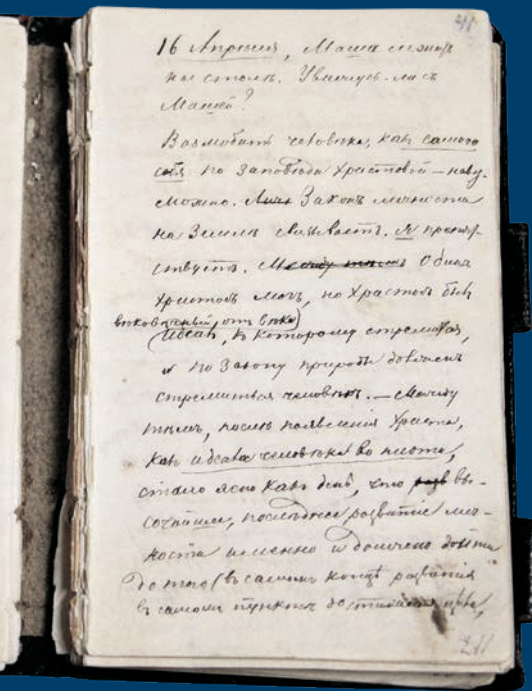 41
16 Апреля, Маша лежитъ
на столѣ. Увижусь-ли съ
Машей?
Возлюбить человѣка, какъ самого
себя по заповѣди Христовой — невоз-
можно. Личн Законъ личности
на Землѣ связываетъ. Я препят-
ствуетъ. Между тѣмъ Одинъ
Христосъ могъ, но Христосъ былъ
вѣковѣчный отъ вѣка
идеалъ, къ которому стремится,
и по Закону природы долженъ
стремиться человѣкъ. — Между
тѣмъ, послѣ появленія Христа,
какъ идеала человѣка во плоти,
стало ясно какъ день, что разв вы-
сочайшее, послѣднее развитіе лич-
ности именно и должно дойти
до того (въ самомъ концѣ развитія
въ самомъ пунктѣ достиженія цѣли,